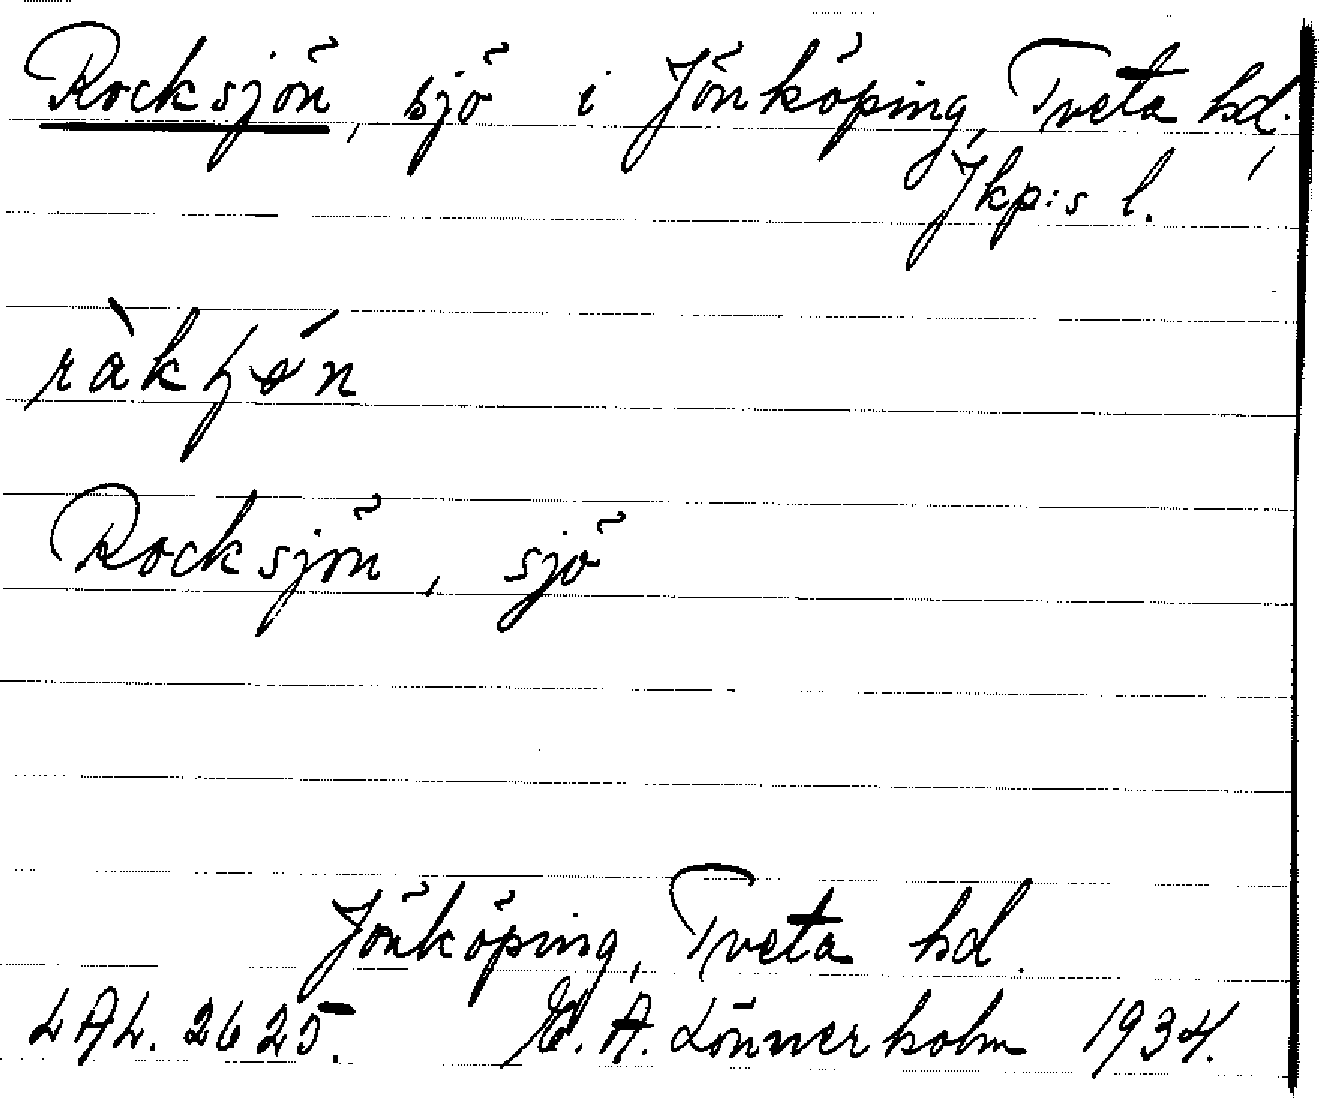 Rocksjön, sjö i Jönköping, Tveta hd.,
Jkp:s l.
ràkɧǿn
Rocksjön, sjö
Jönköping, Tveta hd.
LAL. 2625. E. A. Lönnerholm 1934.